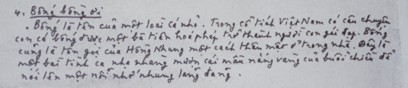 4. Bống bống ơi
. Bống là tên của một loài cá nhỏ. Trong cổ tích Việt Nam có câu chuyện
con cá bống được một bà tiên hoá phép trở thành người con gái đẹp. Bống
cũng là tên gọi của Hồng Nhung một cách thân mật ở trong nhà. Đây là
một bài tình ca nhẹ nhàng mượn cái màu nắng vàng của buổi chiều để
nói lên một nỗi nhớ nhung lãng đãng.